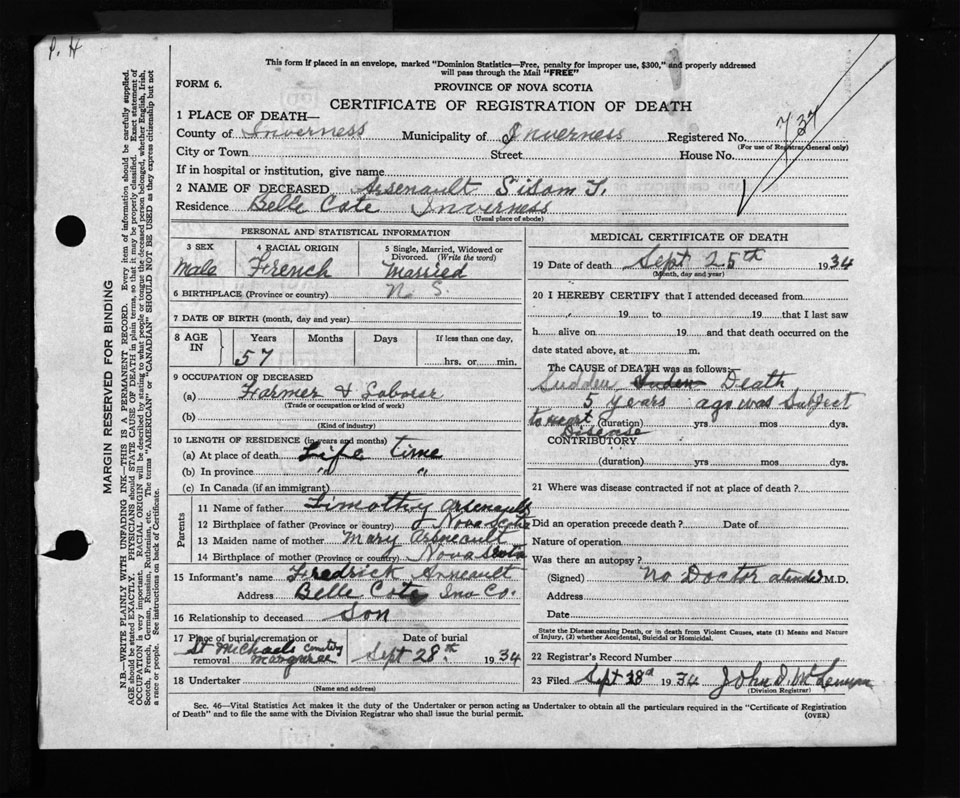 P. H
This form if placed in an envelope, marked "Dominion Statistics—Free, penalty for improper use, $300," and properly addressed
will pass through the Mail "FREE"
FORM 6.
PROVINCE OF NOVA SCOTIA
CERTIFICATE OF REGISTRATION OF DEATH
1 PLACE OF DEATH—
County of Inverness Municipality of Inverness Registered No. 737
(For use of Registrar General only)
City or Town Street House No.
If in hospital or institution, give name
2 NAME OF DECEASED Arsenault Silom T.
Residence Belle Cote Inverness
(Usual place of abode)
MARGIN RESERVED FOR BINDING
N.B.—WRITE PLAINLY WITH UNFADING INK—THIS IS A PERMANENT RECORD. Every item of information should be carefully supplied.
AGE should be stated EXACTLY. PHYSICIANS should STATE CAUSE OF DEATH in plain terms, so that it may be properly classified. Exact statement of
OCCUPATION is very important. RACIAL ORIGIN will be described by stating to what people or tongue the deceased person belonged, whether English, Irish,
Scotch, French, German, Russian, Ruthenian, etc. The terms "AMERICAN" or "CANADIAN" SHOULD NOT BE USED as they express citizenship but not
a race or people. See instructions on back of Certificate.
PERSONAL AND STATISTICAL INFORMATION
3 SEX 4 RACIAL ORIGIN 5 Single, Married, Widowed or
Divorced. (Write the word)
Male French Married
6 BIRTHPLACE (Province or country) N S.
7 DATE OF BIRTH (month, day and year)
8 AGE IN Years Months Days If less than one day,
57 hrs. or min.
9 OCCUPATION OF DECEASED
(a) Farmer & Laborer
(Trade or occupation or kind of work)
(b)
(Kind of industry)
10 LENGTH OF RESIDENCE (in years and months)
(a) At place of death Life time
(b) In province " "
(c) In Canada (if an immigrant)
Parents
11 Name of father Timothy Arsenault
12 Birthplace of father (Province or country) Nova Scotia
13 Maiden name of mother Mary Arseneault
14 Birthplace of mother (Province or country) Nova Scotia
15 Informant's name Fredrick Arseault
Address Belle Cote Inv Co.
16 Relationship to deceased Son
17 Place of burial, cremation or Date of burial
removal St Michaels cemetery Margaree Sept 28th 1934
18 Undertaker
(Name and address)
MEDICAL CERTIFICATE OF DEATH
19 Date of death Sept 25th 1934
(Month, day and year)
20 I HEREBY CERTIFY that I attended deceased from
, 19 to 19 that I last saw
h alive on 19 and that death occurred on
date stated above, at m.
The CAUSE of DEATH was as follows:
Sudden Death
5 years ago was Subject
to Heart Disease (duration) yrs. mos. dys.
CONTRIBUTORY
(duration) yrs. mos. dys.
21 Where was disease contracted if not at place of death?
Did an operation precede death? Date of
Nature of operation
Was there an autopsy?
(Signed) No Doctor atended M.D.
Address
Date
State the Disease causing Death, or in death from Violent Causes, state (1) Means and Nature
of Injury, (2) whether Accidental, Suicidal or Homicidal.
22 Registrar's Record Number
23 Filed Sept 28d 1934 John D. McLennan
(Division Registrar)
Sec. 46—Vital Statistics Act makes it the duty of the Undertaker or person acting as Undertaker to obtain all the particulars required in the "Certificate of Registration
of Death" and to file the same with the Division Registrar who shall issue the burial permit.
(OVER)